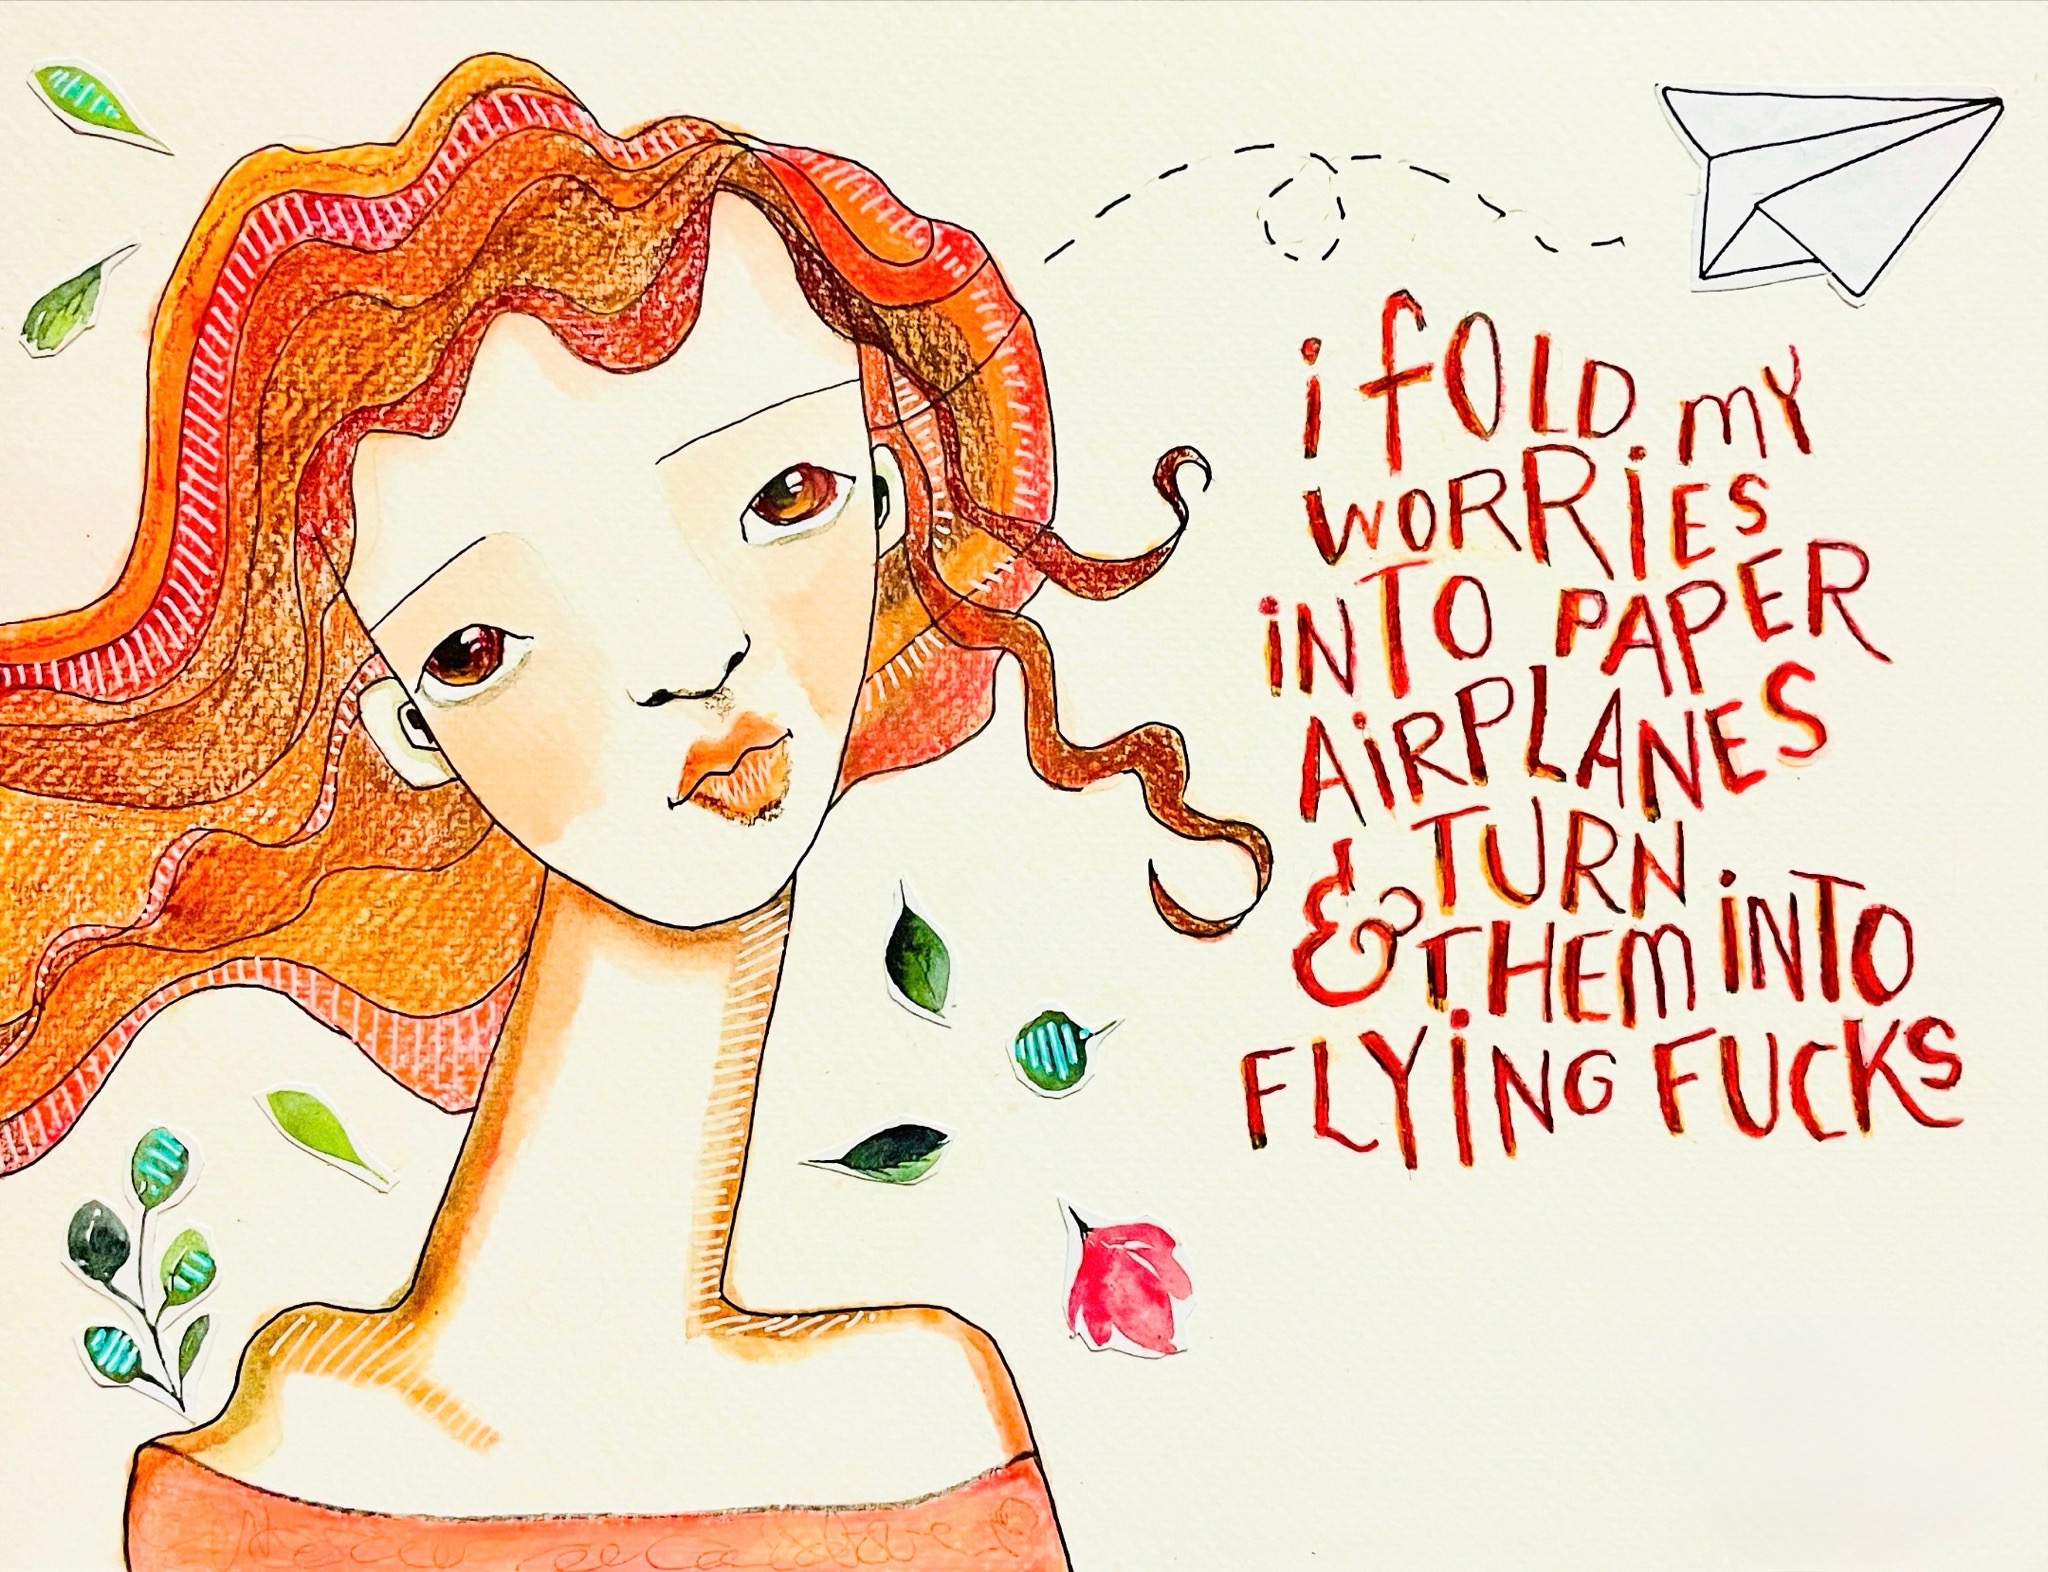 i FOLD MY
WORRiES
iNTO PAPER
AiRPLANES
& TURN
THEM iNTO
FLYiNG FUCKS